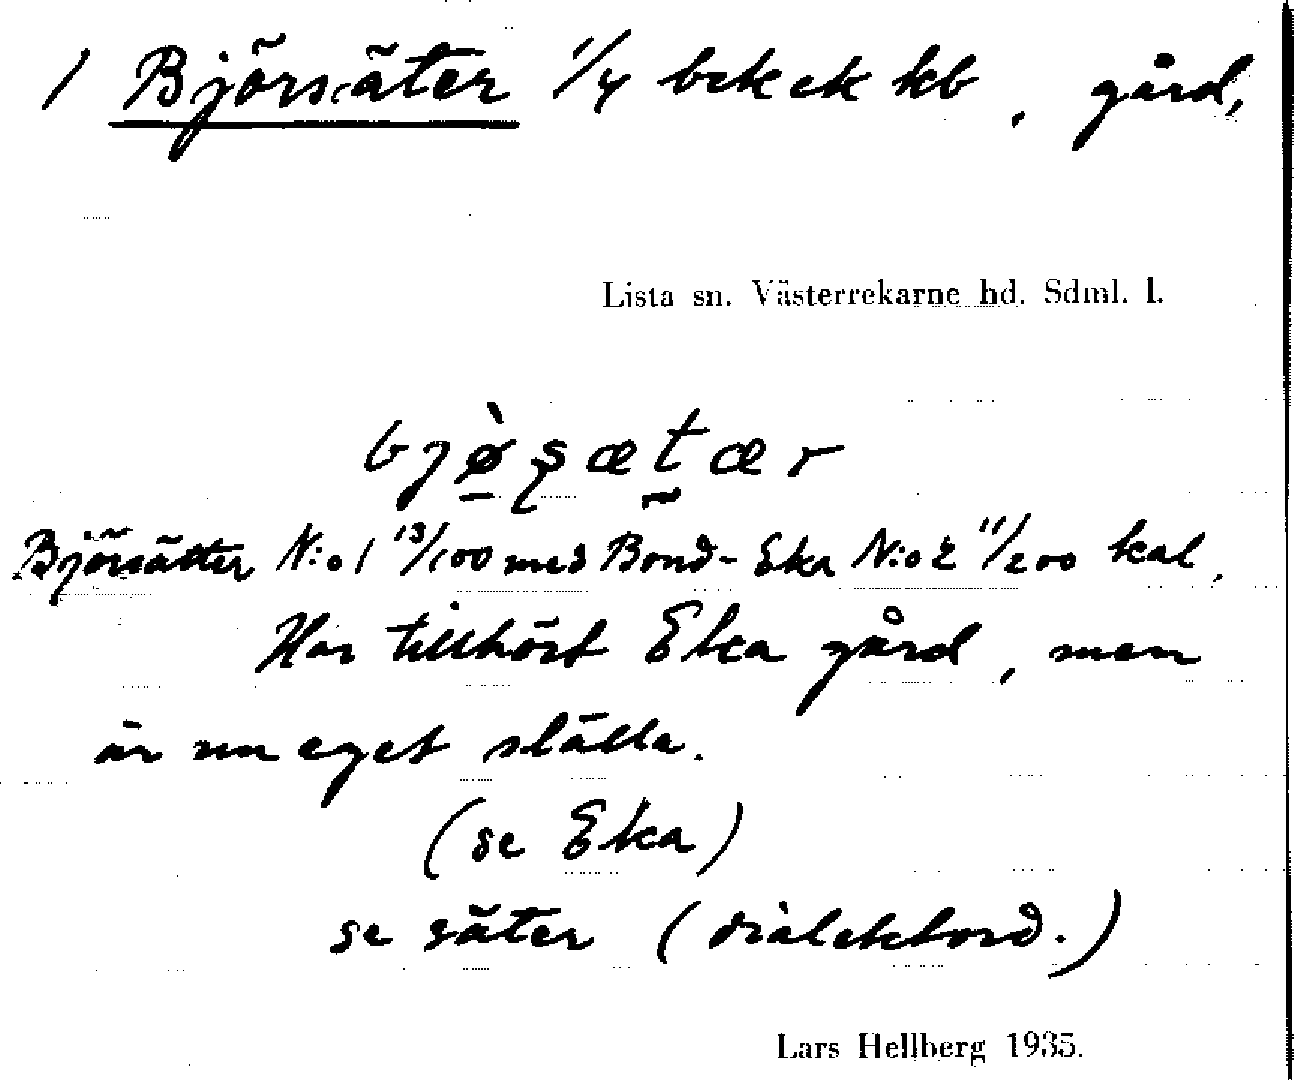 1 Björsäter 1/4 bek ek kb, gård,
Lista sn. Västerrekarne hd. Sdml. l.
bjø̀ʂætær
Björsätter N:o 1 13/100 med Bond-Eka N:o 2 11/200 kal,
Har tillhört Eka gård, men
är nu eget ställe.
(se Eka)
se säter (dialektord.)
Lars Hellberg 1935.